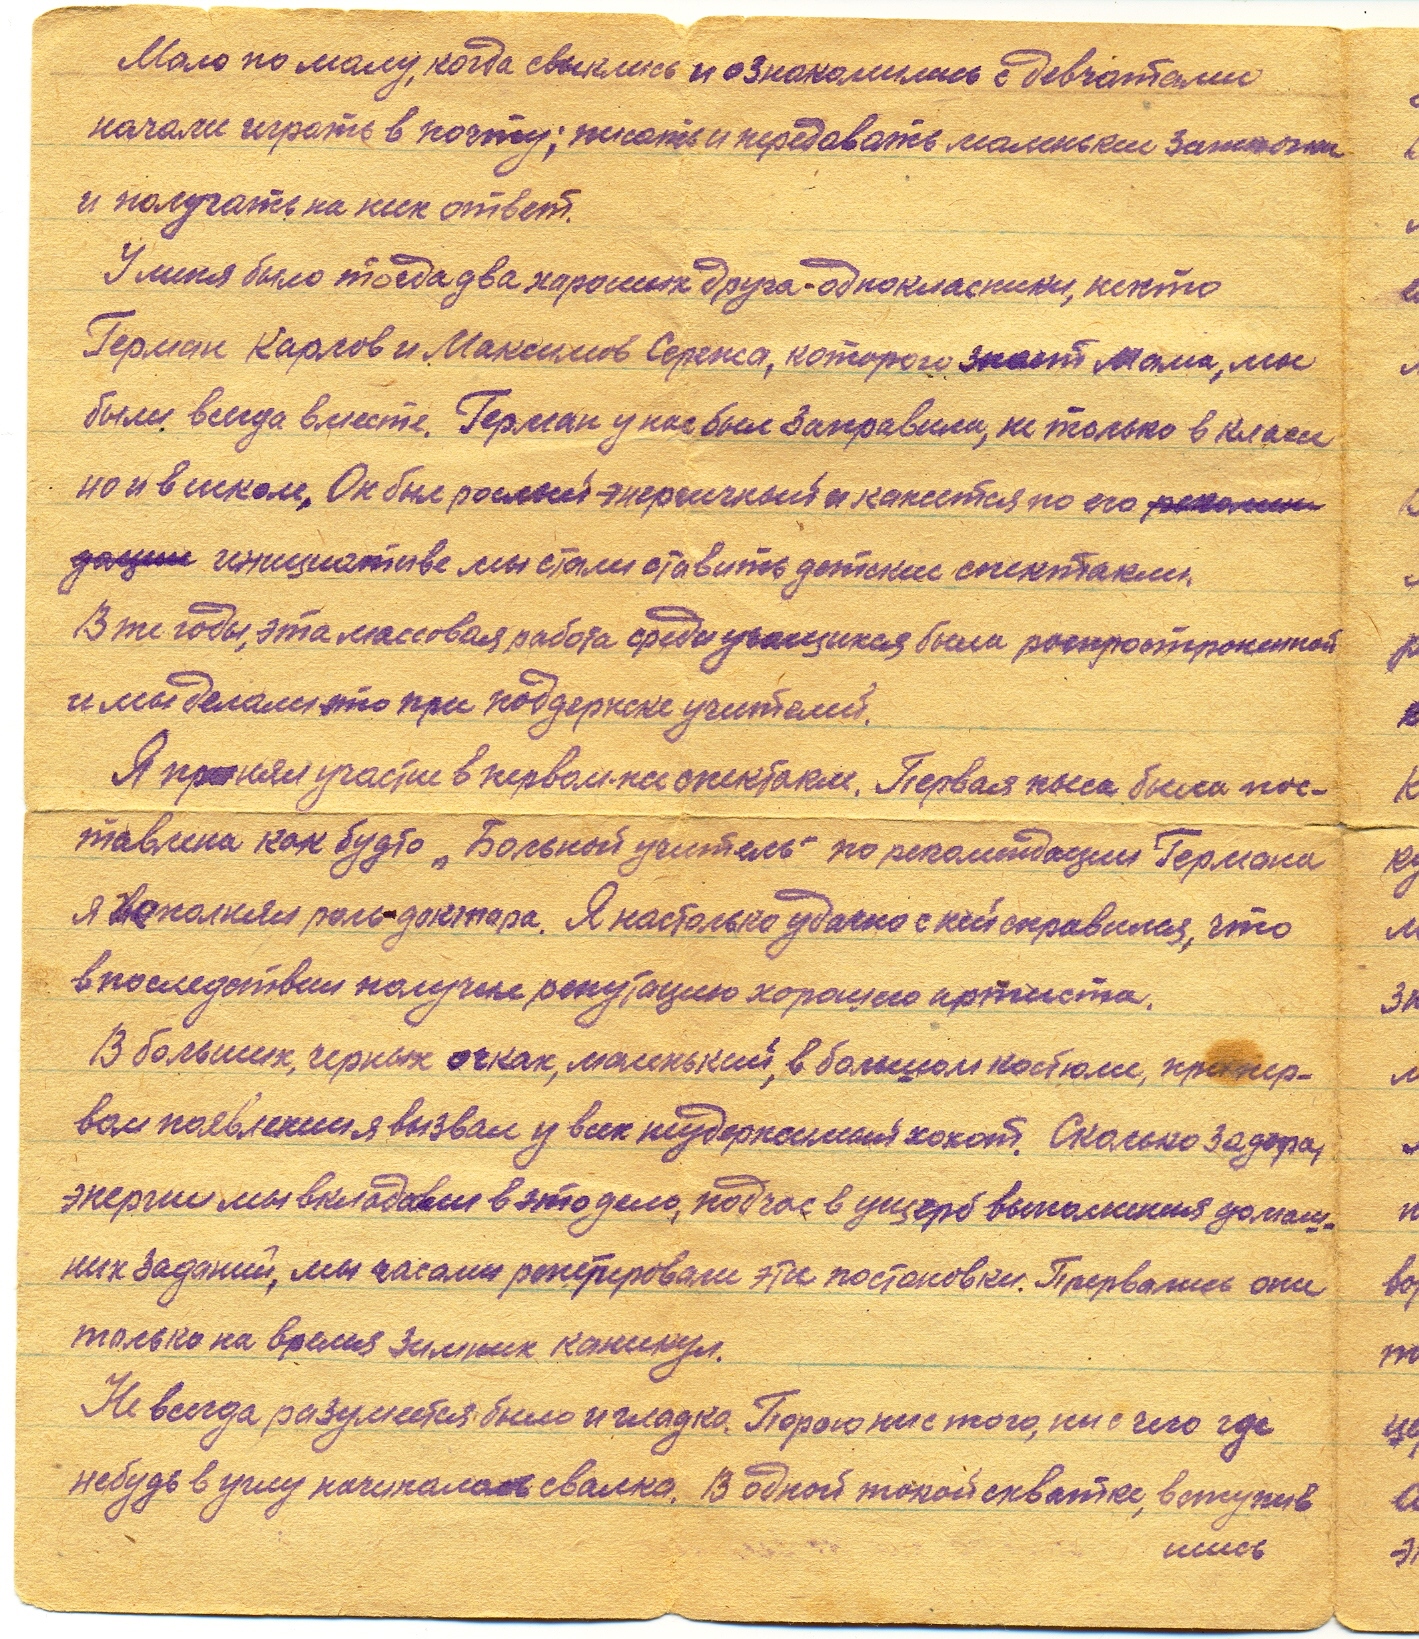 Мало по малу, когда свыклись и ознакомились с девчатами
начали играть в почту; писать и передавать маленькие записочки
и получать на них ответ.
У меня было тогда два хороших друга-однокласники, некто
Герман Карлов и Максимов Сережа, которого знает мама, мы
были всегда вместе. Герман у нас был заправила, не только в класе
но и в школе. Он был рослый энергичный и кажется по его рекомен
дации инициативе мы стали ставить детские спектакли.
В те годы, эта массовая работа среди учащихся была распространенной
и мы делали это при поддержке учителей.
Я принял участие в первом-же спектакле. Первая пьеса была пос-
тавлена как будто „Больной учитель" по рекомендации Германа
я исполнял роль доктора. Я настолько удачно с ней справился, что
в последствии получил репутацию хорошего артиста.
В больших, черных очках, маленький, в большом костюме, при пер-
вом появлении я вызвал у всех неудержимый хохот. Сколько задора,
энергии мы вкладовали в это дело, подчас в ущерб выполнения домаш-
них заданий, мы часами репетировали эти постановки. Прервались они
только на время зимних каникул.
Не всегда разумеется было и гладко. Порою ни с того, ни с чего где
небудь в углу начиналась свалка. В одной такой схватке, вступив
шись